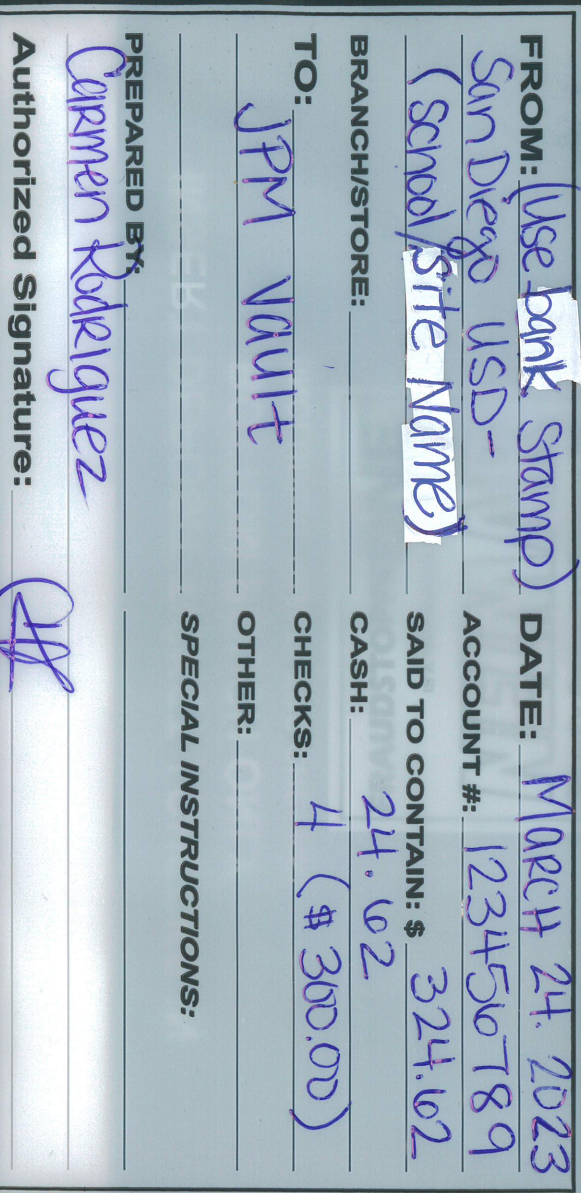 FROM: (Use bank Stamp)
San Diego USD-
(School/Site Name)
BRANCH/STORE:
TO:
JPM Vault
PREPARED BY:
Carmen Rodriguez
Authorized Signature:
DATE: MARCH 24. 2023
ACCOUNT #: 123456789
SAID TO CONTAIN: $ 324.62
CASH: 24.62
CHECKS: 4 ($300.00)
OTHER:
SPECIAL INSTRUCTIONS: